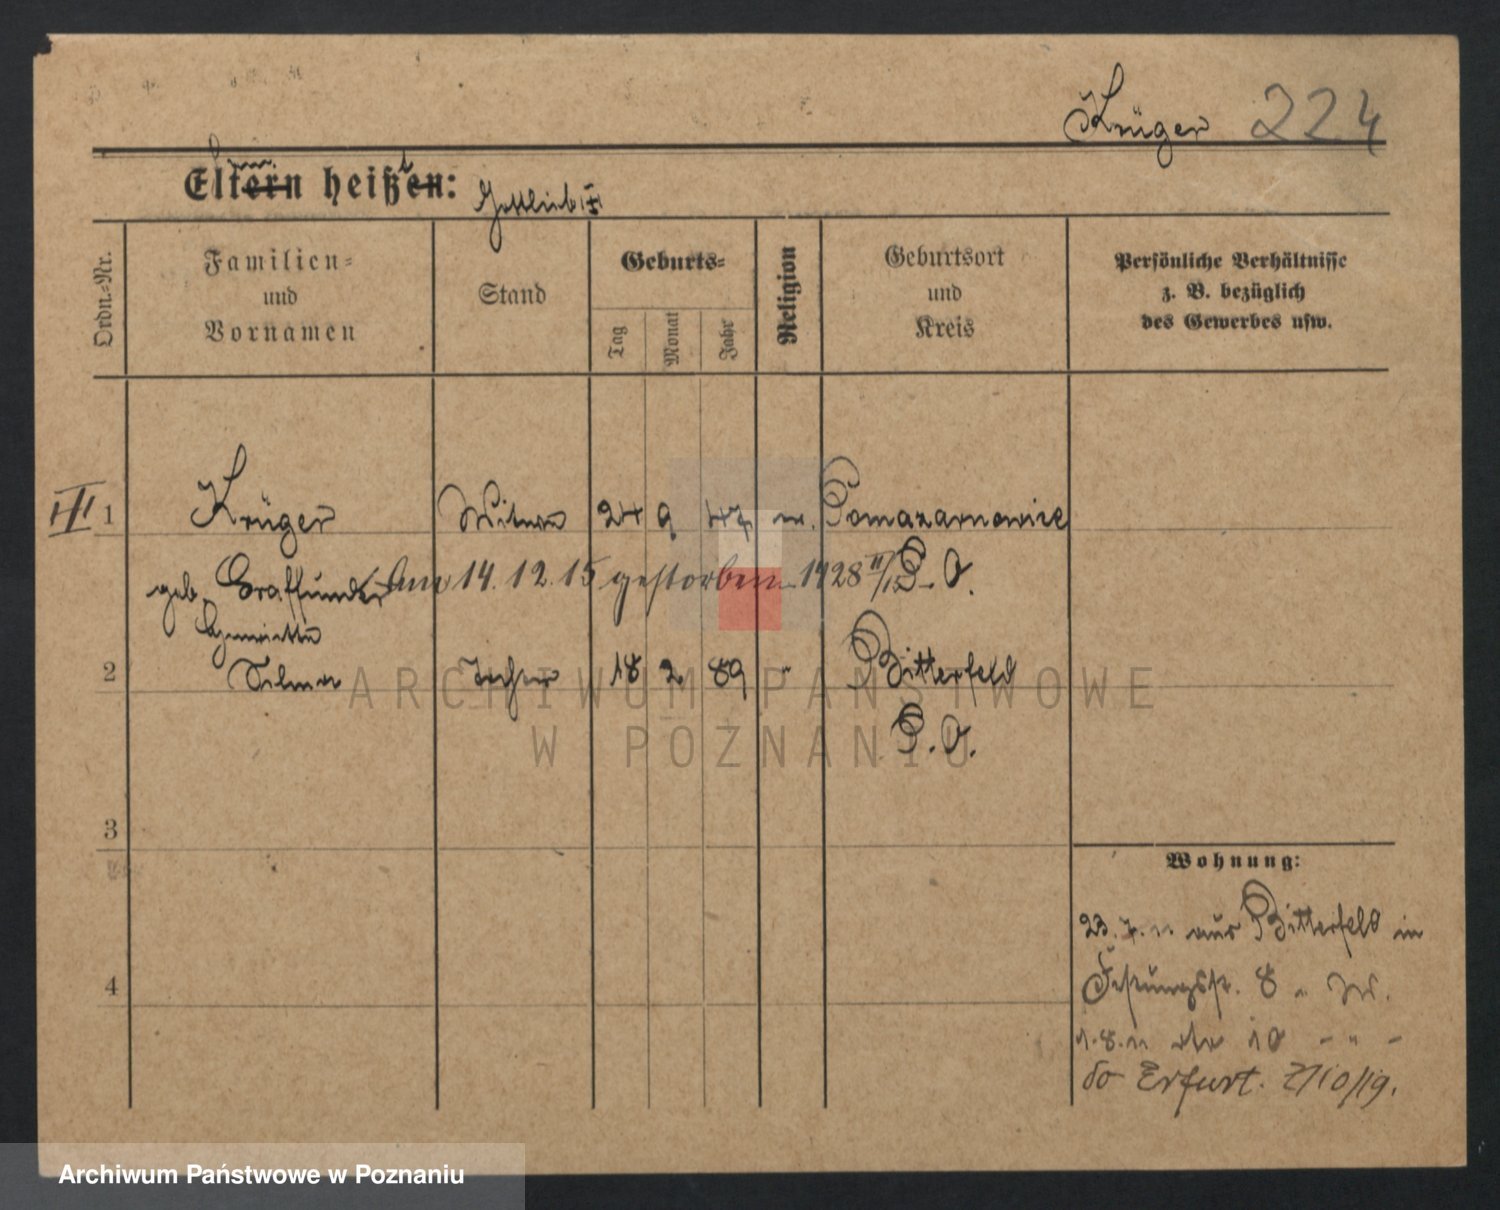 Krüger 224
Eltern heißen:
Gottlieb
Ordn.-Nr.
Familien-
und
Vornamen
Stand
Geburts-
Tag
Monat
Jahr
Religion
Geburtsort
und
Kreis
Persönliche Verhältnisse
z. B. bezüglich
des Gewerbes usw.
III 1 Krüger Witwe 24 9 47 ev. Pomazanowice
geb. Graffunder Am 14. 12. 15 gestorben 1928 II/15 P. O.
Henriette
2 Selma Tochter 18 2 89 " Bitterfeld
P. O.
3
4
Wohnung:
23. 7. 11. aus Bitterfeld in
Festungsstr. 8 W.
1. 8. 11 10 - " -
do Erfurt. 7/10/19.
ARCHIWUM PAŃSTWOWE
W POZNANIU
Archiwum Państwowe w Poznaniu